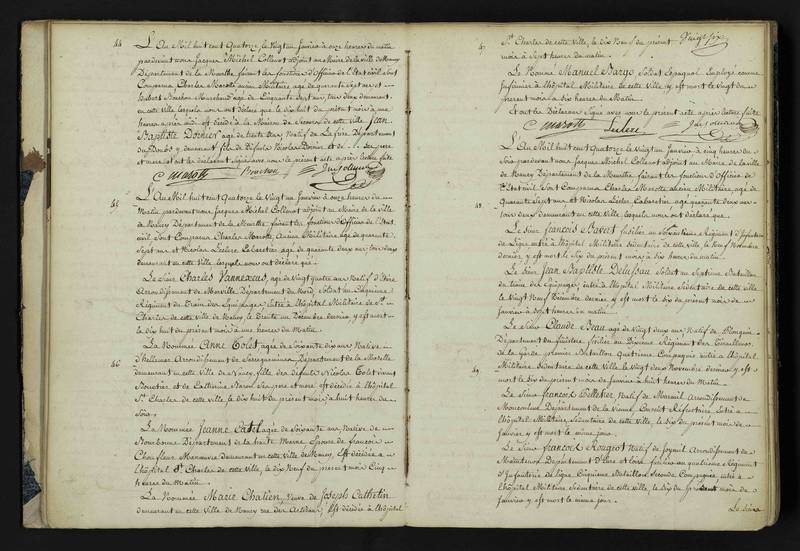 44 L'An Mil huit cent Quatorze le Vingt un Janvier à onze heures du matin
pardevant nous Jacques Michel Collenot adjoint au Maire de la ville de Nancy
Département de la Meurthe faisant les fonctions d'Officier de l'Etat civil sont
Comparus Charles Marotte ancien Militaire age de quarante sept ans et
Hubert Bouchon Marchand age de Cinquante
en cette ville lesquels nous ont déclaré que le dix huit du présent mois à une
heure après midi est décédé à la de cette ville Jean
Baptiste Donier age de trente Natif de Département
du Doubs y demeurant fils de Nicolas Donier et de
et nous ont les déclarans Signé avec nous le présent acte après lecture faite
C Marotte Bouchon
45 L'An Mil huit cent Quatorze le Vingt un Janvier à onze heures du
Matin pardevant nous Jacques Michel Collenot adjoint au Maire de la ville
de Nancy Département de la Meurthe faisant les fonctions d'Officier de l'Etat
civil Sont Comparus Charles Marotte Ancien Militaire age de quarante
Sept ans et Nicolas Leclerc Cabaretier age de quarante deux ans tous deux
demeurant en cette ville lesquels nous ont déclaré que
Le Sieur Charles Vannexeau, age de Vingt quatre ans Natif d'
Arrondissement de Département du Nord, Soldat au
Régiment du Train des Equipages entré à l'hôpital Militaire de St
Charles de cette ville de Nancy le trente un Décembre dernier y est mort
le dix huit du présent mois à une heure du Matin.
La Nommée Anne Tolet agée de Soixante dix ans Native
d'Hellimer Arrondissement de Sarreguemines Département de la Moselle
46 demeurant en cette ville de Nancy, fille des défunts Nicolas Tolet vivant
et de Catherine est décédée à l'hôpital
St Charles de cette ville, le dix huit du présent mois à huit heures du
Soir.
La Nommée Jeanne Catel agée de Soixante ans Native de
Bourbonne Département de la haute Marne Epouse de françois
Choufleur Manœuvre demeurant en cette ville de Nancy Est décédée à
l'hôpital St Charles de cette ville, le dix Neuf du présent mois Cinq
heures du Matin.
La Nommée Marie Chatien, Veuve de Joseph Cathelin
demeurant en cette Ville de Nancy rue des Artisans, Est décédée à l'hôpital
47 St Charles de cette ville, le dix Neuf du présent Vingt six
mois à Sept heures du matin.
Le Nommé Manuel Bargo Soldat Espagnol Employé comme
Infirmier à l'hôpital Militaire de cette Ville y est mort le Vingt du
présent mois à dix heures du Matin.
Et ont les Déclarans Signé avec nous le présent acte après lecture faite
C Marotte Leclerc
L'An Mil huit cent Quatorze le Vingt un Janvier à cinq heures du
Soir pardevant nous Jacques Michel Collenot adjoint au Maire de la ville
de Nancy Département de la Meurthe faisant les fonctions d'Officier de
l'Etat civil Sont Comparus Charles Marotte ancien Militaire, age de
Quarante Sept ans et Nicolas Leclerc Cabaretier agé quarante deux ans
48 tous deux demeurant en cette ville, lesquels nous ont déclaré que.
Le Sieur François Davert fusilier au Régiment d'Infanterie
de Ligne entré à l'hôpital Militaire Sédentaire de cette ville le Neuf Novembre
dernier y est mort le dix du présent mois à dix heures du matin.
Le Sieur Jean Baptiste Delussau Soldat au Septième Bataillon
du train des Equipages entré à l'hôpital Militaire Sédentaire de cette ville
le Vingt Neuf Décembre dernier y est mort le dix du présent mois de
Janvier à Sept heures du matin.
Le Sieur Claude Beau age de Vingt deux ans Natif de
Département du finistère fusilier au Sixième Régiment des Tirailleurs
de la garde premier Bataillon Quatrième Compagnie entré à l'hôpital
Militaire Sédentaire de cette ville le Vingt deux Novembre dernier y est
49 mort le dix du présent mois de Janvier à huit heures du Matin.
Le Sieur François Pelletier Natif de Mareuil Arrondissement de
Département de la Vienne Conscrit Réfractaire Entré à
l'hôpital Militaire Sédentaire de cette ville, le dix du présent mois de
Janvier y est mort le même jour.
Le Sieur François Rougeot Natif de Arrondissement de
Département d'Eure et Loir fusilier au quatrième Régiment
d'Infanterie de ligne Cinquième Bataillon Seconde Compagnie, entré à
l'hôpital Militaire Sédentaire de cette ville, le dix du présent mois de
Janvier y est mort le même jour.
Le Sieur